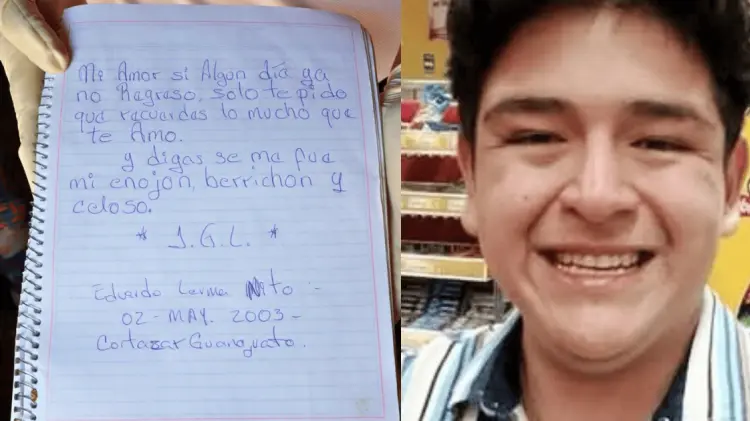 Mi Amor si Algun día ya
no Regreso, solo te pido
que recuerdes lo mucho que
te Amo.
y digas se me fue
mi enojon, berrichon y
celoso.
* J.G.L. *
Eduardo Lerma Nito :-
02 - MAY. 2003 -
Cortazar Guanajuato.